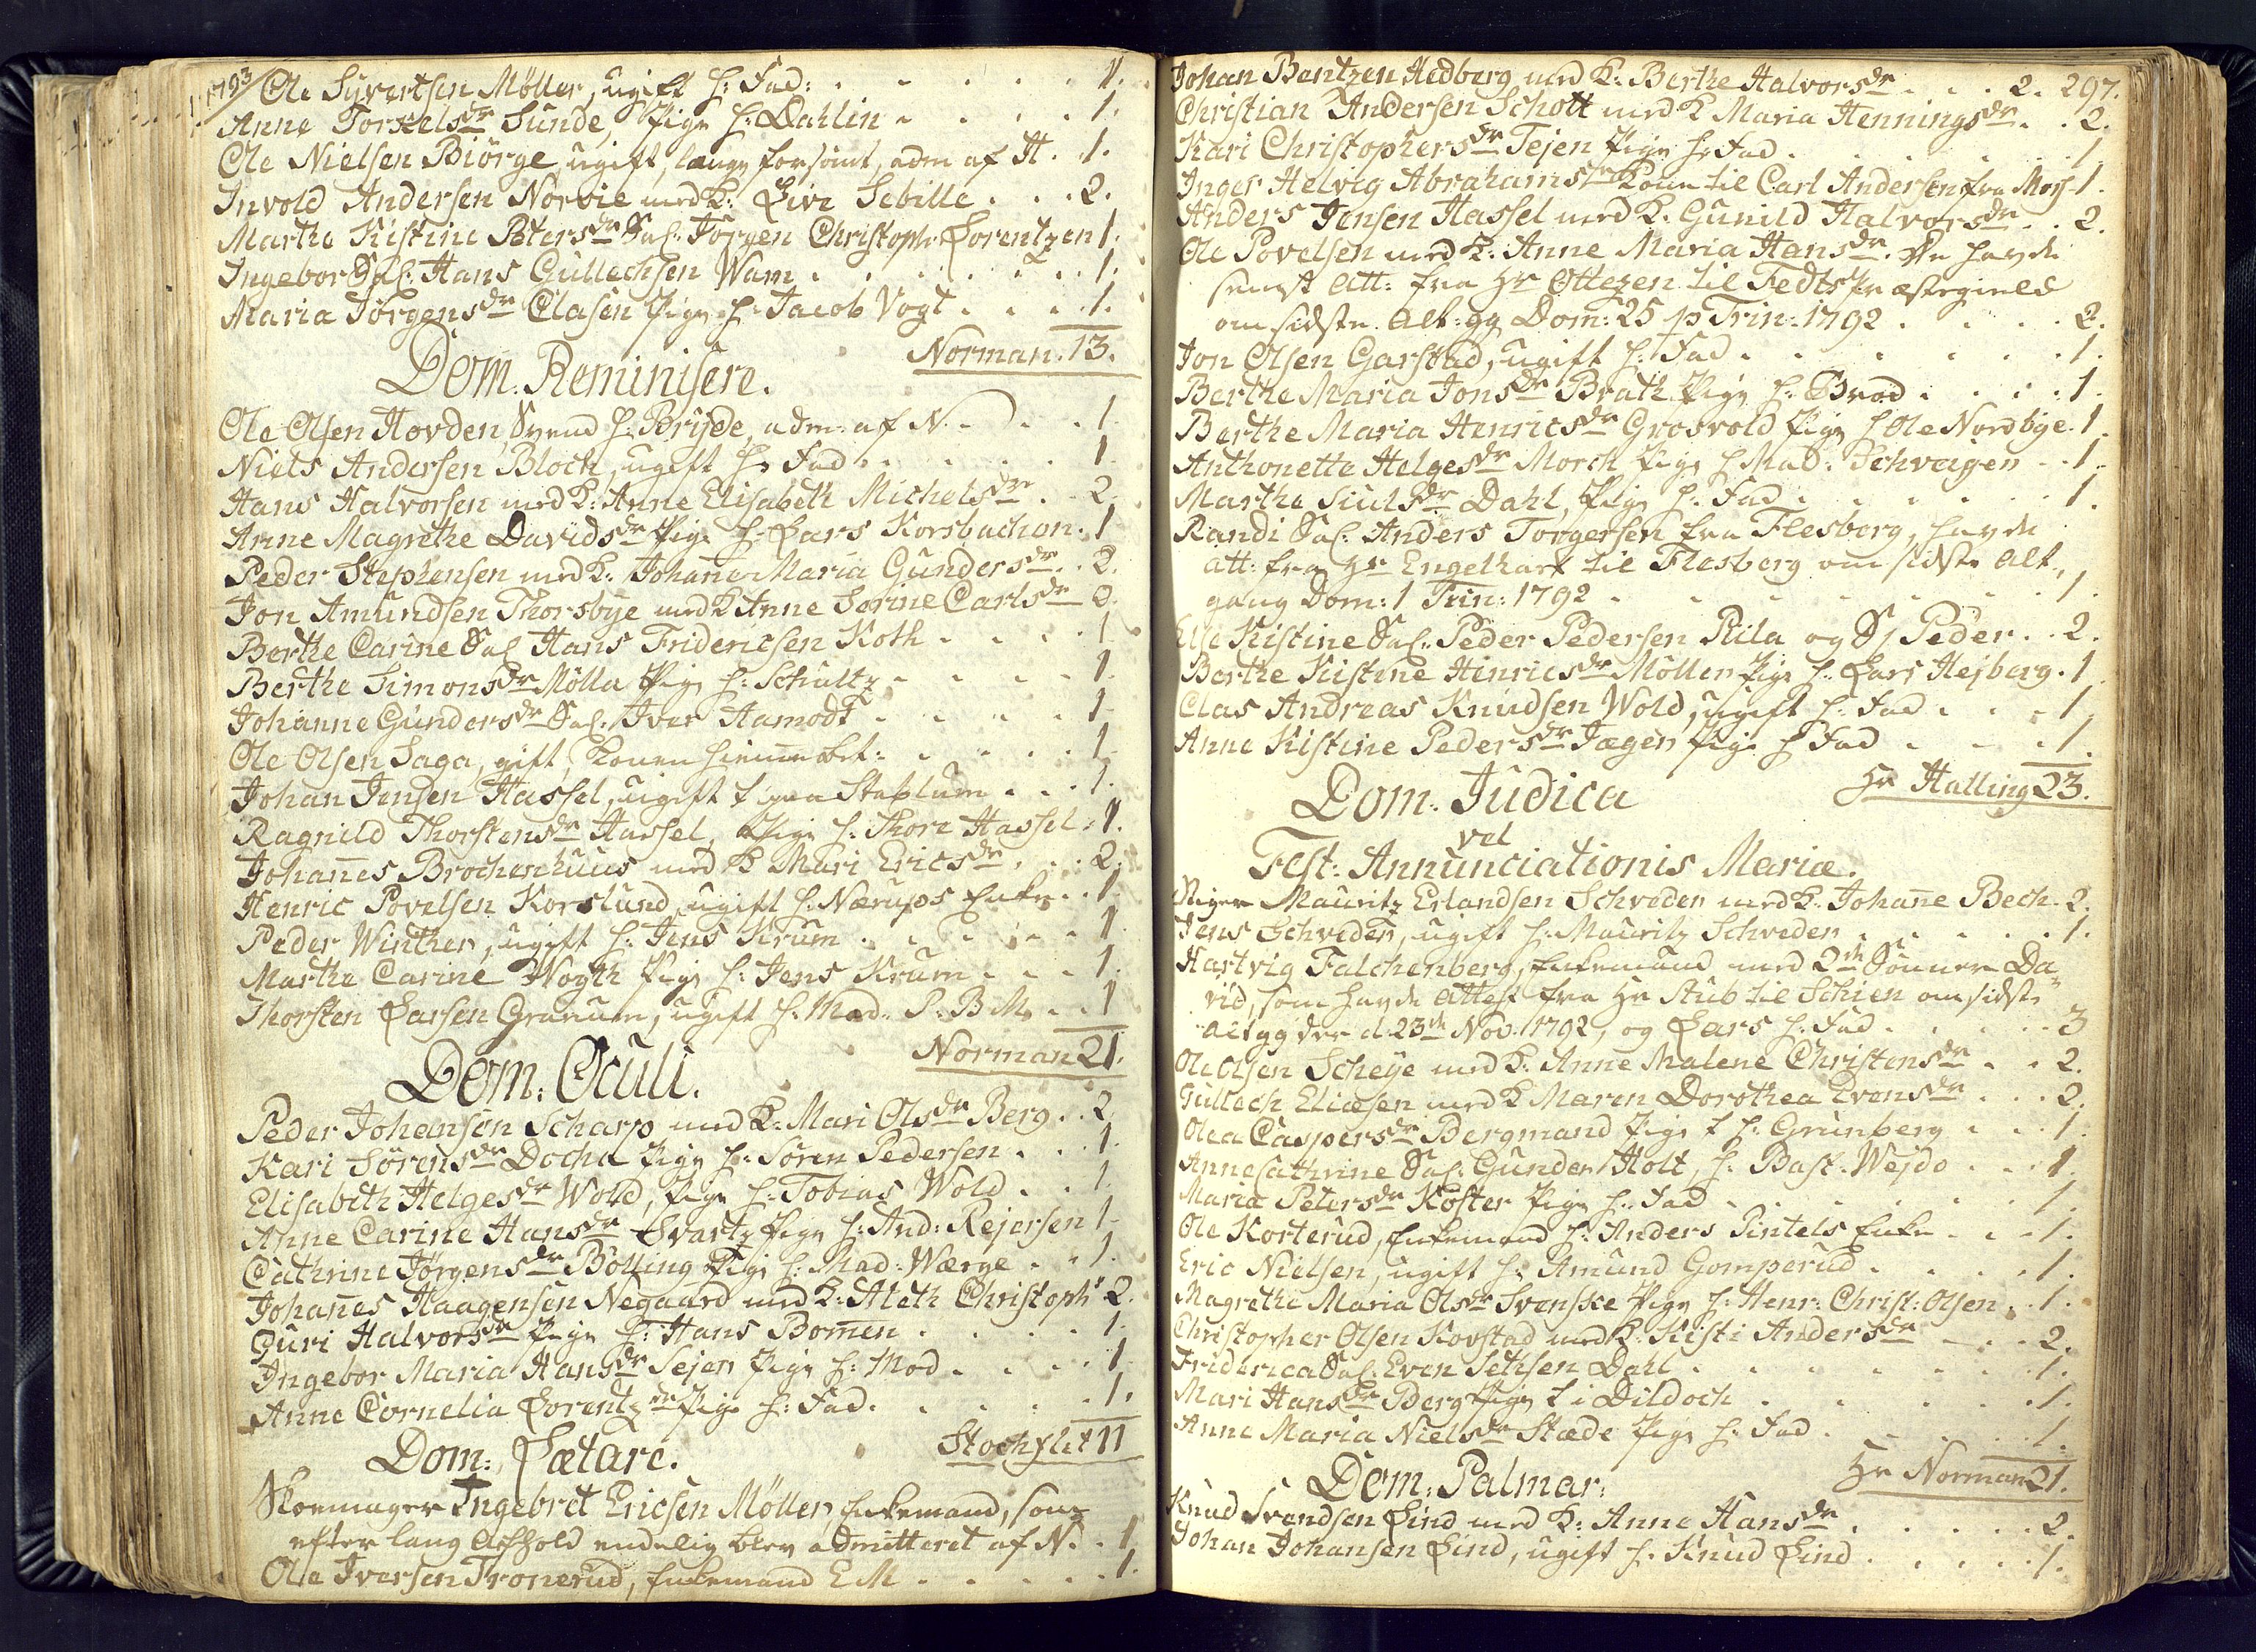 1793
Ole Syvertsen Möller, ugift h: Fad: . . . . . 1.
Anne Torkelsdr Sunde, Pige h: Dahlin . . . . 1.
Ole Nielsen Biörge, ugift, længe forsömt, adm af H. . 1.
Invold Andersen Norvie med K: Live Sebille . . . 2.
Marthe Kistine Petersdr Sal: Jörgen Christoph: Lorentzen 1.
Ingebor Sal: Hans Gullechsen Wam . . . . . 1.
Maria Jörgensdr Clasen Pige h: Jacob Vogt . . . 1.
Norman. 13.
Dom: Reminisere.
Ole Olsen Hovden, Svend h: Brijde, adm: af N. . . . 1
Niels Andersen Bloch, ugift h: Fad . . . . . 1
Hans Halvorsen med K: Anne Elisabeth Michelsdr . . 2.
Anne Magrethe Davidsdr Pige h: Lars Korsbachen . 1
Peder Stephensen med K: Johanne Maria Gundersdr . . 2.
Jon Amundsen Thorsbye med K Anne Sorine Carlsdr 2.
Berthe Carine Sal Hans Fridericsen Koth . . . . 1
Berthe Simonsdr Mölla Pige h: Schultz . . . . 1.
Johanne Gundersdr Sal: Iver Aamodt . . . . 1
Ole Olsen Saga, gift, Konen hiemme bet: . . . . 1
Johan Jensen Hassel, ugift t paa Stablum . . . 1.
Ragnild Thorstensdr Hassel, Pige h: Thore Hassel . 1.
Johannes Brochenhuus med K Mari Ericsdr . . . 2.
Henric Povelsen Korslund, ugift h: Nærups Enke . . 1
Peder Winther, ugift h: Jens Krum . . . . . 1
Marthe Carine Wogth Pige h: Jens Krum . . . 1.
Thorsten Larsen Gruum, ugift h: Mad: P. B M . . 1
Norman 21.
Dom: Oculi.
Peder Johansön Scharp med K: Mari Olsdr Berg . . 2
Kari Sörensdr Docha Pige h: Sören Pedersen . . . 1.
Elisabeth Helgesdr Wold, Pige h: Tobias Wold . . 1.
Anne Carine Hansdr Svartz Pige h: And: Rejersen 1
Cathrine Jörgensdr Bölling Pige h: Mad: Wærge . . 1.
Johannes Haagensen Negaard med K: Aleth Christophr 2.
Guri Halvorsdr Pige h: Hans Bomen . . . . 1.
Ingebor Maria Hansdr Sejer Pige h: Mod . . . . 1
Anne Cornelia Lorentzdr Pige h: Fad . . . . . 1.
Stochflet 11
Dom: Lætare.
Skoemager Ingebret Ericsen Möller, Enkemand, som
efter lang Ophold endelig blev admitteret af N. . 1
Ole Iversen Tronerud, Enkemand E M . . . . . 1.
297.
Johan Bentzen Hedberg med K: Berthe Halvorsdr . . . 2.
Christian Andersen Schott med K Maria Henningsdr . . 2.
Kari Christophersdr Tejen Pige h: Fad . . . . . 1
Inger Helvig Abrahamsdr Kone til Carl Andersen fra Moss 1.
Anders Jensen Hassel med K: Gunild Halvorsdr . . 2.
Ole Povelsen med K: Anne Maria Hansdr. De havde
senest Att: fra Hr Ottezen til Fedts Præstegield
om sidste Alt: gg Dom: 25 p Trin: 1792 . . . . 2.
Jon Olsen Garstad, ugift h: Fad . . . . . . 1.
Berthe Maria Jonsdr Brath Pige h: Brod . . . . 1.
Berthe Maria Henricsdr Grosvold Pige h Ole Nordbye . 1
Anthonette Helgesdr Morch Pige h Mad: Schveigen . . 1.
Marthe Siulsdr Dahl, Pige h: Fad . . . . . . 1.
Randi Sal: Anders Torgersen fra Flesberg, havde
att: fra Hr Engelhart til Flesberg om sidste Alt.
gang Dom: 1 Trin: 1792 . . . . . . . 1.
Else Kistine Sal: Peder Pedersen Riila og S Peder . . 2.
Berthe Kistine Henricsdr Möller Pige h: Lars Hejberg . 1
Clas Andreas Knudsen Wold, ugift h: Fad . . . 1
Anne Kistine Pedersdr Jæger Pige h Fad . . . 1.
Hr Halling 23.
Dom: Judica
vel
Fest: Annunciationis Mariæ.
Mauritz Erlandsen Schveder med K: Johanne Bech . 2.
Jens Schveden, ugift h: Mauritz Schveder . . . . 1.
Hartvig Falchenberg, Enkemand med 2de Sönner Da-
vid, som havde Attest fra Hr Aub til Schien om sidste
alt gg der d. 23de Nov. 1792, og Lars h: Fad . . . . 3
Ole Olsen Scheye med K: Anne Malene Christensdr . . 2.
Gullech Eliæsen med K Maren Dorothea Evensdr . . . 2.
Olea Caspersdr Bergmand Pige t h: Grünberg . . . 1.
Anne Cathrine Sal: Gunder Holt, h: Bast: Wejdo . . . 1.
Maria Petersdr Köster Pige h: Fad . . . . . . 1.
Ole Korterud, Enkemand h: Anders Pintels Enke . . . 1.
Eric Nielsen, ugift h: Amund Gomperud . . . . 1.
Magrethe Maria Olsdr Svenske Pige h: Henr: Christ: Olsen . 1.
Christopher Olsen Kovstad med K: Kisti Andersdr . . . 2.
Friderica Sal: Even Sethsen Dahl . . . . . . . 1.
Mari Hansdr Berg Pige t i Dildoch . . . . . . 1.
Anne Maria Nielsdr Stæde Pige h: Fad . . . . . 1.
Hr Norman 21.
Dom: Palmar:
Knud Svendsen Lind med K: Anne Hansdr . . . . . 2.
Johan Johansen Lind, ugift h: Knud Lind . . . . . 1.